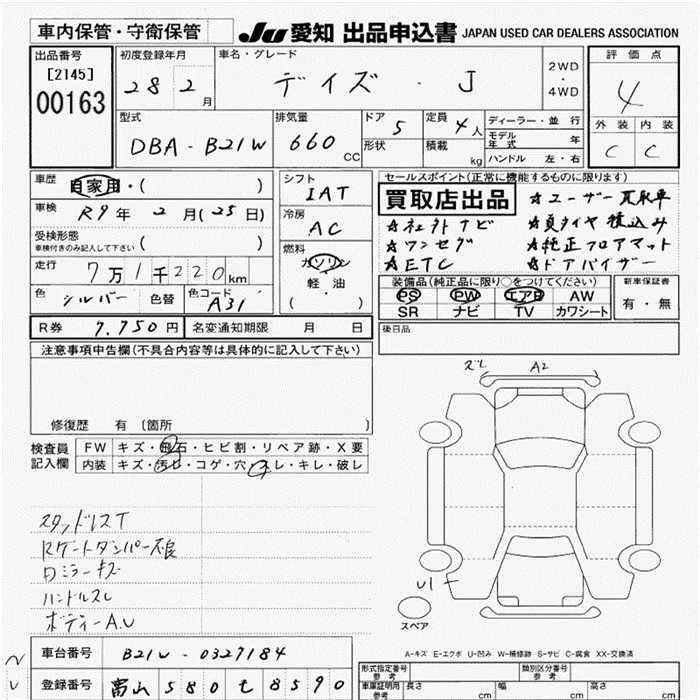 車内保管・守衛保管
JU 愛知 出品申込書 JAPAN USED CAR DEALERS ASSOCIATION
出品番号
[2145]
00163
初度登録年月
28 2月
車名・グレード
デイズ . J
2WD
・
4WD
評価点
4
外装 内装
C C
型式
DBA - B21W
排気量
660 CC
ドア
5
形状
定員
4人
積載 kg
ディーラー・並行
モデル年式 年
ハンドル 左・右
車歴 自家用・( )
車検 R9年 2月(25日)
受検形態
車検付きのみ記入して下さい ( )
走行 7万1千220km
色 シルバー 色替 色コード A31
シフト
IAT
冷房
AC
燃料
ガソリン
軽油
( )
セールスポイント(正常に機能するものに限ります)
買取店出品
☆ユーザー買取車
☆社外ナビ ☆夏タイヤ積込み
☆ワンセグ ☆純正フロアマット
☆ETC ☆ドアバイザー
装備品(純正品に限り○をつけてください)
PS PW エアB AW
SR ナビ TV カワシート
新車保証書
有・無
R券 7,750円 名変通知期限 月 日
後日品
注意事項申告欄(不具合内容等は具体的に記入して下さい)
修復歴 有 (箇所 )
検査員記入欄
FW キズ・飛石・ヒビ割・リペア跡・X要
内装 キズ・汚レ・コゲ・穴・スレ・キレ・破レ
スタッドレスT
Rゲートダンパー不良
ミラーキズ
ハンドルスレ
ボディーA.U
スレ A2
U1
スペア
A-キズ E-エクボ U-凹み W-補修跡 S-サビ C-腐食 XX-交換済
車台番号 B21W - 0327184
登録番号 富山 580 せ 8590
形式指定番号
参考
類別区分番号
参考
車庫証明用
参考
長さ cm 幅 cm 高さ cm